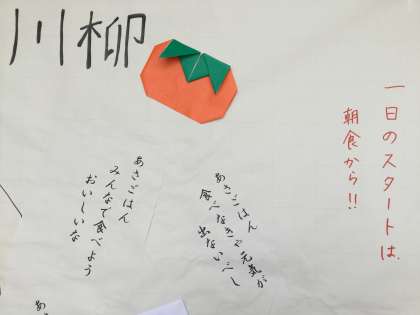 川柳
一日のスタートは、
朝食から!!
あさごはん
食べなきゃ元気が
出ないべし
あさごはん
みんなで食べよう
おいしいな
あ